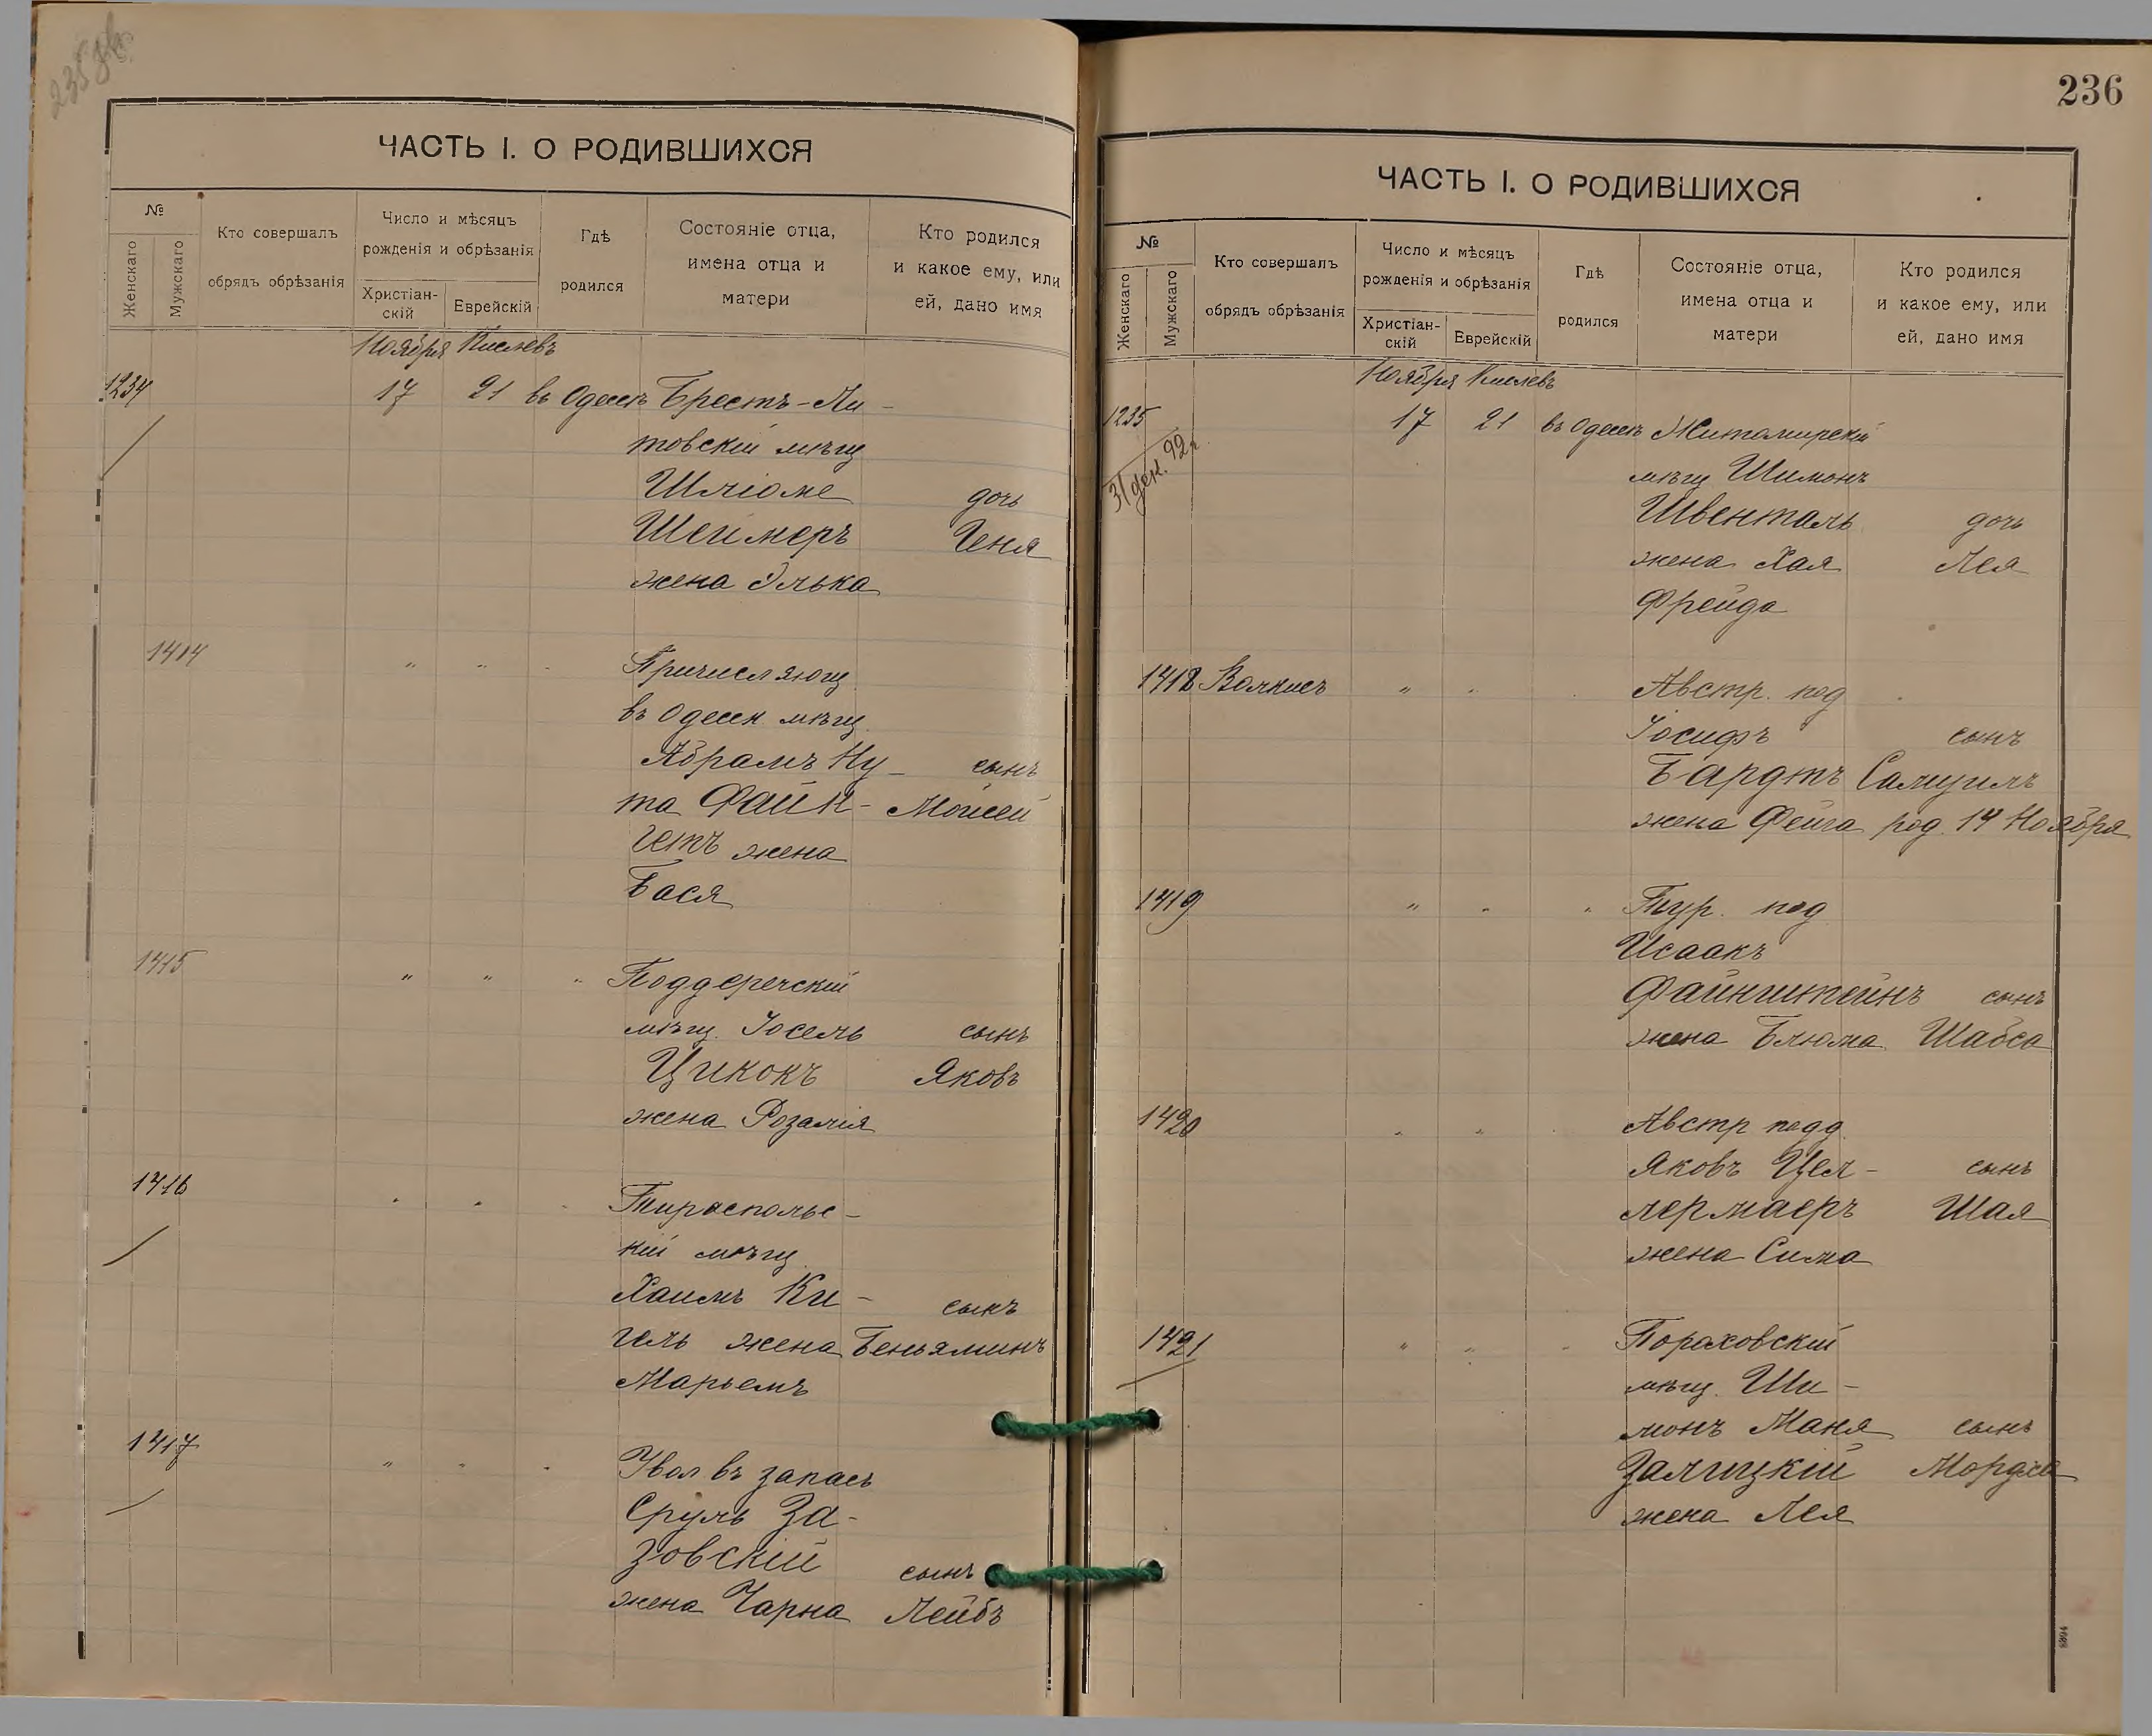 ЧАСТЬ I. О РОДИВШИХСЯ
№
Женскаго
Мужскаго
Кто совершалъ
обрядъ обрѣзанія
Число и мѣсяцъ
рожденія и обрѣзанія
Христіан-
скій
Еврейскій
Гдѣ
родился
Состояніе отца,
имена отца и
матери
Кто родился
и какое ему, или
ей, дано имя
Ноября Кислевъ
1234 17 21 въ Одессѣ Брестъ-Ли-
товскій мѣщ
Шліоме дочь
Шеймеръ Геня
жена Элька
1414 " " " Причисляющ
въ Одесск мѣщ.
Абрамъ Ну- сынъ
та Файн- Моисей
гетъ жена
Бася
1415 " " " Поддеречскій
мѣщ. Іосель сынъ
Цикокъ Яковъ
жена Розалія
1416 " " " Тираспольс-
кій мѣщ
Хаимъ Ки- сынъ
гель жена Беньяминъ
Марьемъ
1417 " " " Увол въ запасъ
Сруль За-
зовскій сынъ
жена Чарна Лейбъ
236
ЧАСТЬ I. О РОДИВШИХСЯ
№
Женскаго
Мужскаго
Кто совершалъ
обрядъ обрѣзанія
Число и мѣсяцъ
рожденія и обрѣзанія
Христіан-
скій
Еврейскій
Гдѣ
родился
Состояніе отца,
имена отца и
матери
Кто родился
и какое ему, или
ей, дано имя
Ноября Кислевъ
1235 17 21 въ Одессѣ Житомирскій
31 дек. 92 г.
мѣщ Шимонъ
Швенталь дочь
жена Хая Лея
Фрейда
1418 Волкисъ " " " Австр. под
Іосифъ сынъ
Бардтъ Самуилъ
жена Фейга род. 14 Ноября
1419 " " " Тур. под
Исаакъ
Файнштейнъ сынъ
жена Блюма Шабса
1420 " " " Австр подд.
Яковъ Цел- сынъ
лермаеръ Шая
жена Сима
1421 " " " Пораховскій
мѣщ. Ши-
монъ Маня сынъ
Залицкій Мордха
жена Лея